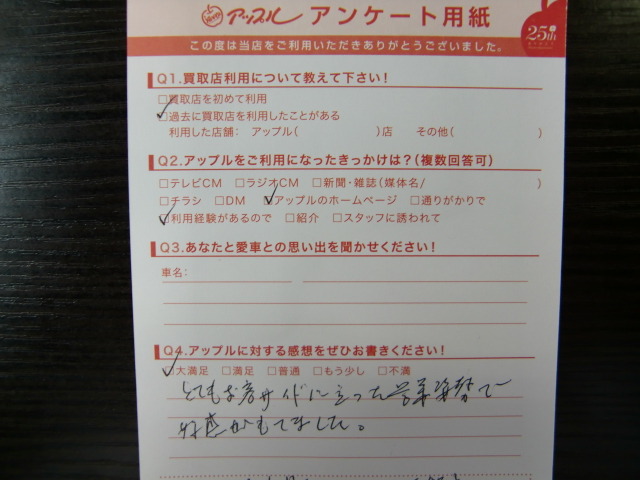 アップル アンケート用紙
25th
この度は当店をご利用いただきありがとうございました。
Q1.買取店利用について教えて下さい!
□買取店を初めて利用
□過去に買取店を利用したことがある
利用した店舗: アップル( )店 その他( )
Q2.アップルをご利用になったきっかけは?(複数回答可)
□テレビCM □ラジオCM □新聞・雑誌(媒体名/ )
□チラシ □DM □アップルのホームページ □通りがかりで
□利用経験があるので □紹介 □スタッフに誘われて
Q3.あなたと愛車との思い出を聞かせください!
車名:
Q4.アップルに対する感想をぜひお書きください!
□大満足 □満足 □普通 □もう少し □不満
とてもお客サイドに立った営業姿勢で
好感がもてました。